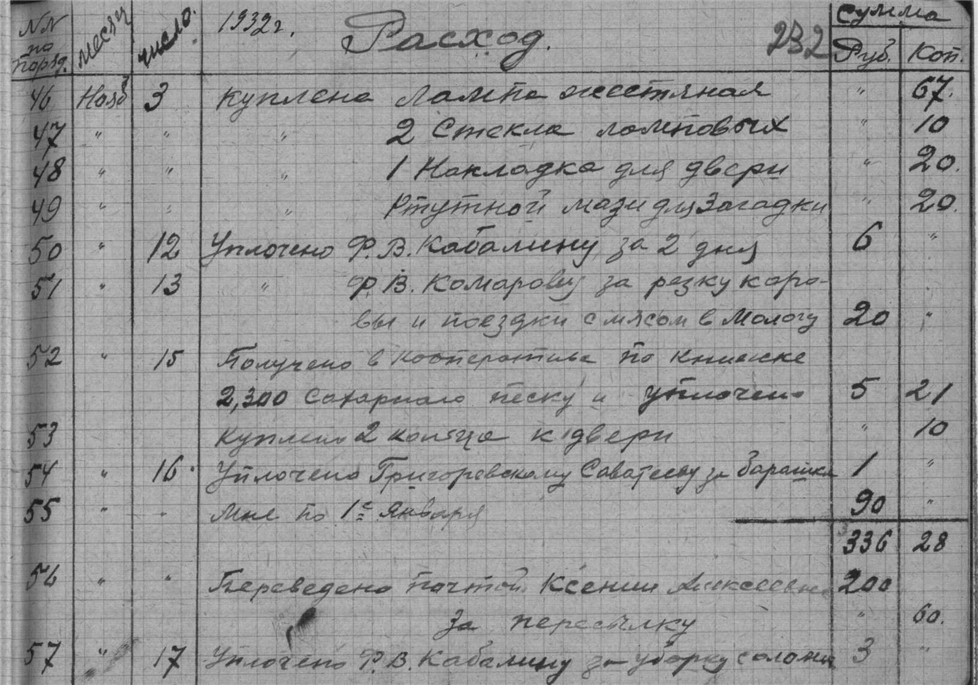 NN по поряд. месяц число. 1932 г. Расход. 232 Сумма Руб. Коп.
46 Нояб 3 Куплена лампа жестяная " 67.
47 " " " 2 Стекла ламповых " 10
48 " " " 1 Накладка для двери " 20.
49 " " " Ртутной мази для Загадки " 20.
50 " 12 Уплочено Ф. В. Кабалину за 2 дня 6 "
51 " 13 " Ф. В. Комарову за резку коро-
вы и поездки с мясом в Мологу 20 "
52 " 15 Получено в кооперативе по книжке
2,300 сахарнаго песку и уплочено 5 21
53 Куплено 2 кольца к двери " 10
54 " 16 Уплочено Григоревскому Саватееву за барашка 1 "
55 " " Мне по 1е Января 90 "
336 28
56 " " Переведено почтой Ксении Алексеевне 200
За пересылку " 60.
57 " 17 Уплочено Ф. В. Кабалину за уборку соломы 3 "